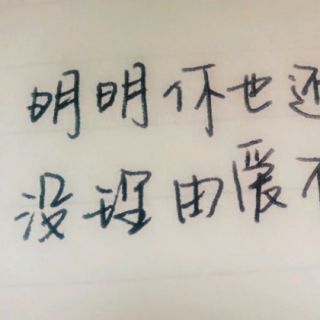 明明你也还
没理由爱不